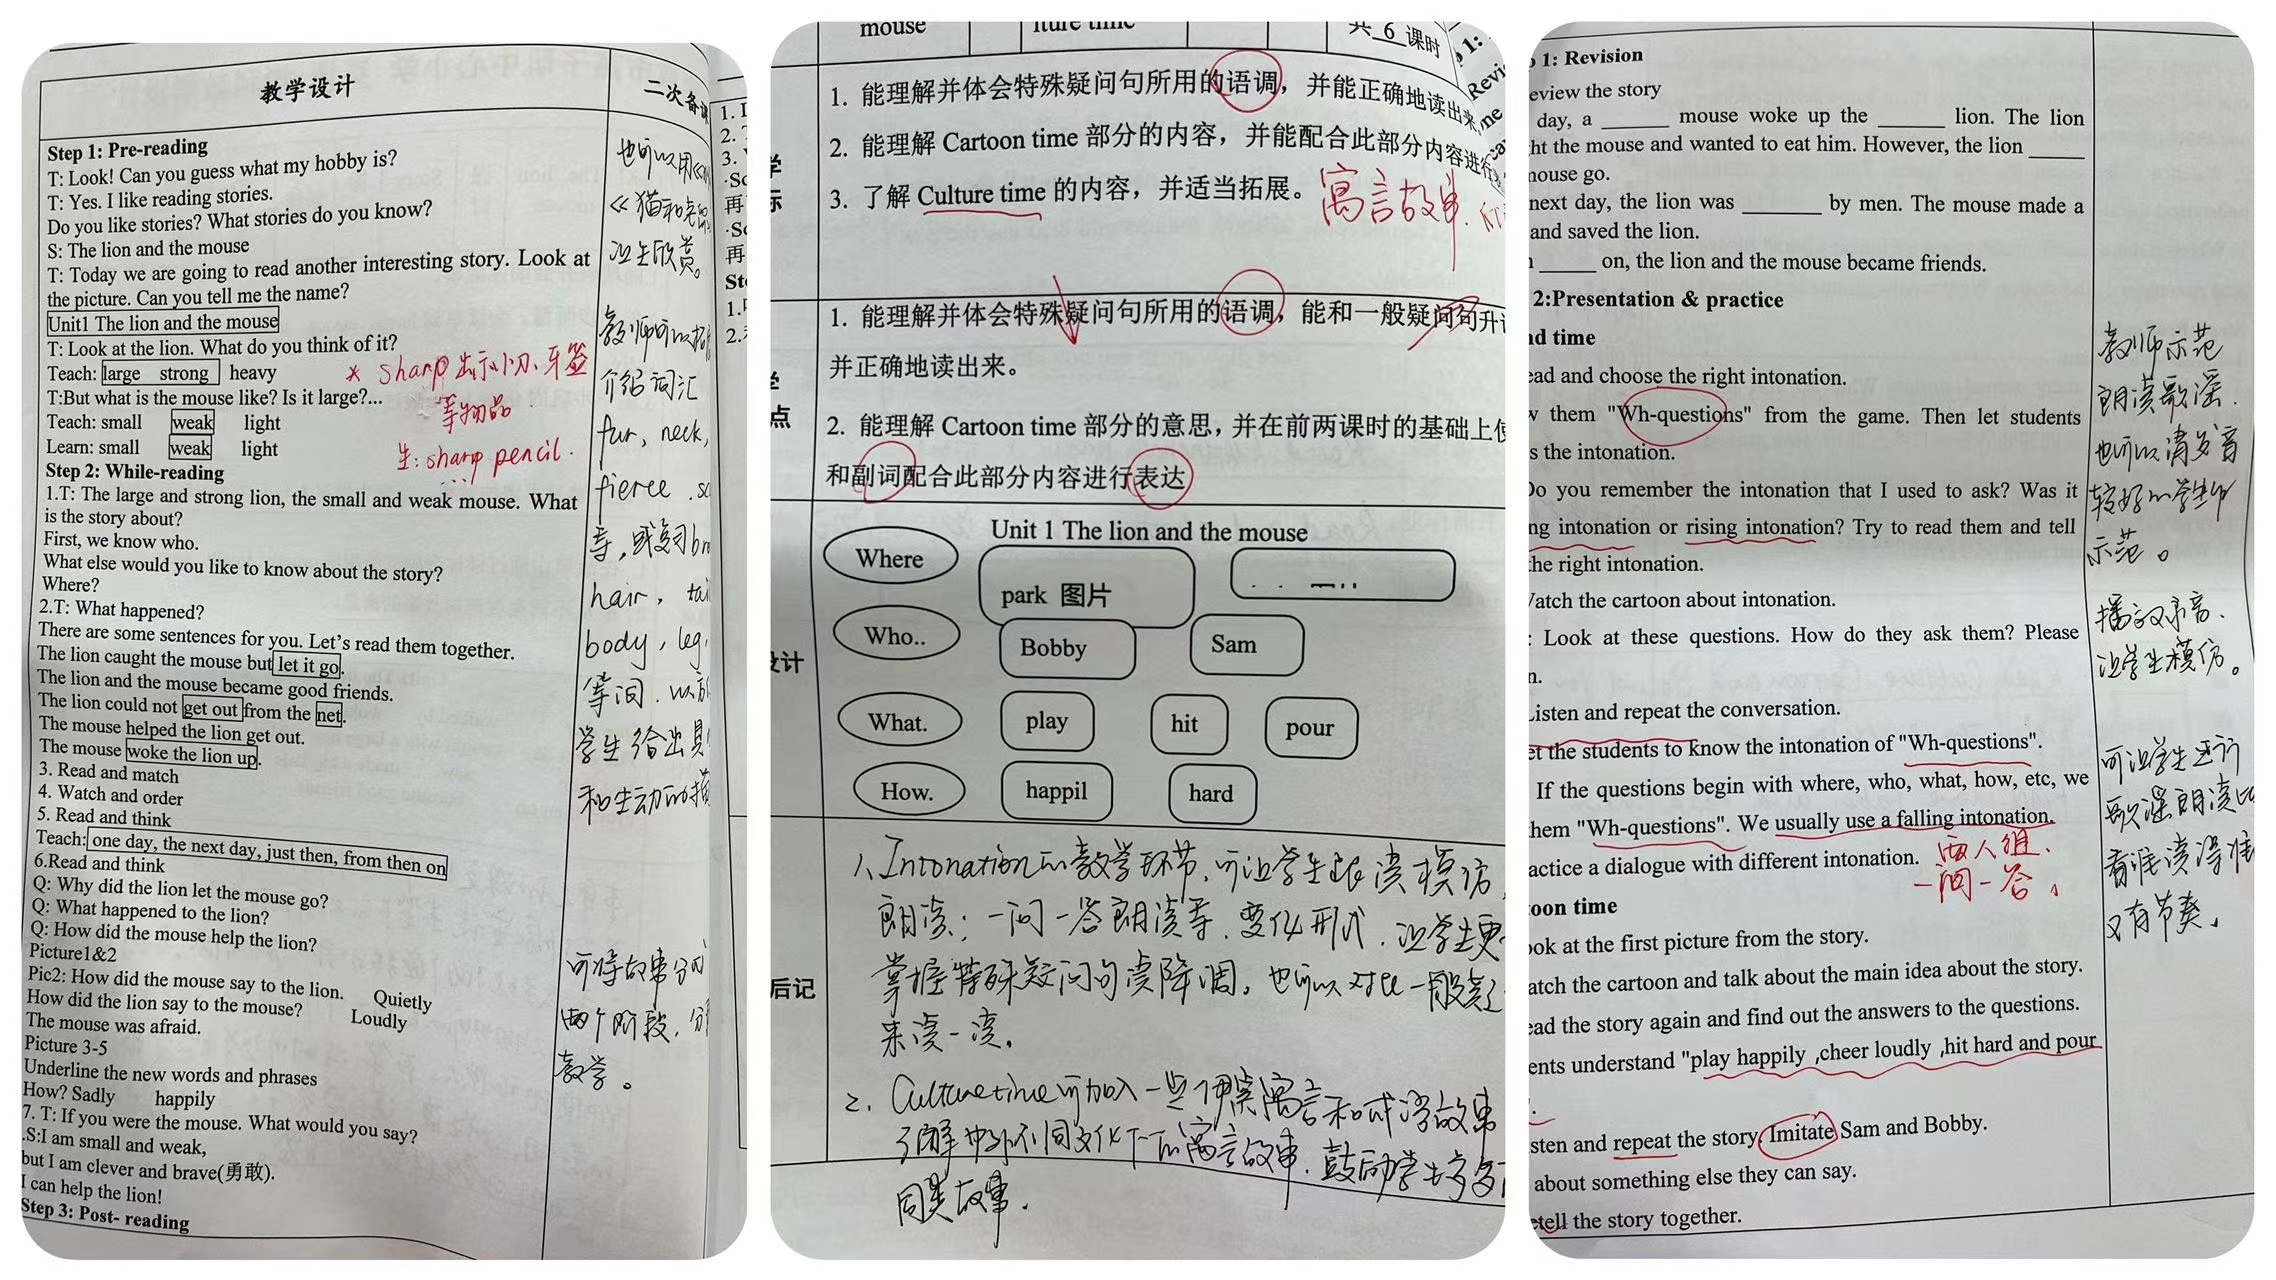 教学设计
二次备课
Step 1: Pre-reading
T: Look! Can you guess what my hobby is?
T: Yes. I like reading stories.
Do you like stories? What stories do you know?
S: The lion and the mouse
T: Today we are going to read another interesting story. Look at
the picture. Can you tell me the name?
Unit1 The lion and the mouse
T: Look at the lion. What do you think of it?
Teach: large strong heavy
T:But what is the mouse like? Is it large?...
Teach: small weak light
Learn: small weak light
* sharp 出示小刀、牙签
等物品
生: sharp pencil.
...
Step 2: While-reading
1.T: The large and strong lion, the small and weak mouse. What
is the story about?
First, we know who.
What else would you like to know about the story?
Where?
2.T: What happened?
There are some sentences for you. Let's read them together.
The lion caught the mouse but let it go.
The lion and the mouse became good friends.
The lion could not get out from the net.
The mouse helped the lion get out.
The mouse woke the lion up.
3. Read and match
4. Watch and order
5. Read and think
Teach: one day, the next day, just then, from then on
6.Read and think
Q: Why did the lion let the mouse go?
Q: What happened to the lion?
Q: How did the mouse help the lion?
Picture1&2
Pic2: How did the mouse say to the lion. Quietly
How did the lion say to the mouse? Loudly
The mouse was afraid.
Picture 3-5
Underline the new words and phrases
How? Sadly happily
7. T: If you were the mouse. What would you say?
.S:I am small and weak,
but I am clever and brave(勇敢).
I can help the lion!
Step 3: Post- reading
也可以用
《猫和老鼠
让生欣赏。
教师可以拓
介绍词汇
fur, neck,
fierce
等,或复习
hair,
body, leg,
等词,以
学生给出具
和生动的描
可将故事分为
两个阶段,分
教学。
mouse
共 6 课时
1. 能理解并体会特殊疑问句所用的语调，并能正确地读出来
2. 能理解 Cartoon time 部分的内容，并能配合此部分内容进行
3. 了解 Culture time 的内容，并适当拓展。 寓言故事.
1. 能理解并体会特殊疑问句所用的语调，能和一般疑问句升
并正确地读出来。
2. 能理解 Cartoon time 部分的意思，并在前两课时的基础上使
和副词配合此部分内容进行表达
Unit 1 The lion and the mouse
Where park 图片
Who.. Bobby Sam
What. play hit pour
How. happil hard
后记
1、Intonation的教学环节，可让学生跟读模仿
朗读；一问一答朗读等，变化形式，让学生更
掌握特殊疑问句读降调，也可以对比一般疑
来读一读。
2. Culture time可加入一些伊索寓言和成语故事
了解中外不同文化下的寓言故事，鼓励学生多
同类故事。
1: Revision
eview the story
day, a ______ mouse woke up the ______ lion. The lion
ht the mouse and wanted to eat him. However, the lion _____
mouse go.
next day, the lion was _______ by men. The mouse made a
and saved the lion.
_____ on, the lion and the mouse became friends.
2:Presentation & practice
nd time
ead and choose the right intonation.
w them "Wh-questions" from the game. Then let students
s the intonation.
Do you remember the intonation that I used to ask? Was it
ng intonation or rising intonation? Try to read them and tell
the right intonation.
Watch the cartoon about intonation.
: Look at these questions. How do they ask them? Please
n.
Listen and repeat the conversation.
et the students to know the intonation of "Wh-questions".
If the questions begin with where, who, what, how, etc, we
hem "Wh-questions". We usually use a falling intonation.
actice a dialogue with different intonation. 两人组.
一问一答。
toon time
ook at the first picture from the story.
atch the cartoon and talk about the main idea about the story.
ead the story again and find out the answers to the questions.
ents understand "play happily ,cheer loudly ,hit hard and pour
sten and repeat the story. Imitate Sam and Bobby.
about something else they can say.
etell the story together.
教师示范
朗读歌谣.
也可以请发音
较好的学生
示范。
播放录音、
让学生模仿。
可让学生进行
歌谣朗读比
看谁读得准
又有节奏。